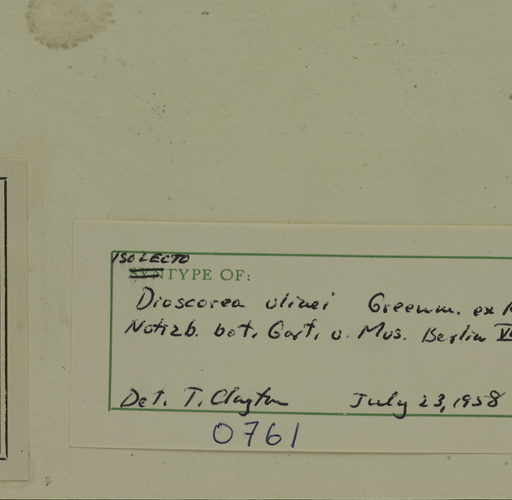 ISOLECTO
TYPE OF:
Dioscorea ulinei Greenm. ex
Notizb. bot. Gart. u. Mus. Berlin
Det. T. Clayton July 23, 1958
0761